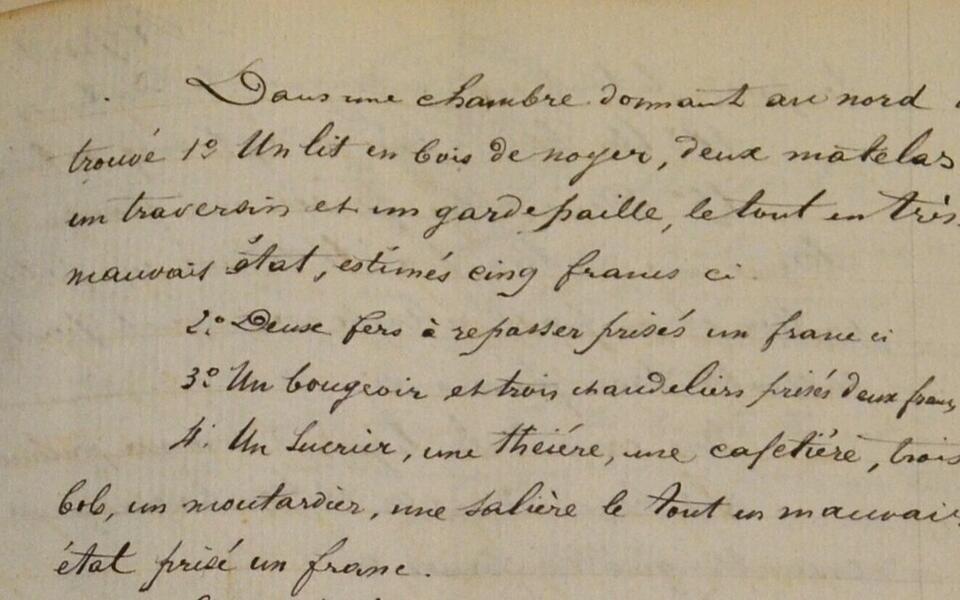 Dans une chambre donnant au nord
trouvé 1º Un lit en bois de noyer, deux matelas
un traversin et un gardepaille, le tout en très
mauvais état, estimés cinq francs ci
2º Deux fers à repasser prisés un franc ci
3º Un bougeoir et trois chandeliers prisés deux francs
4º Un Sucrier, une théière, une cafetière, trois
bols, un moutardier, une salière le tout en mauvais
état prisé un franc.